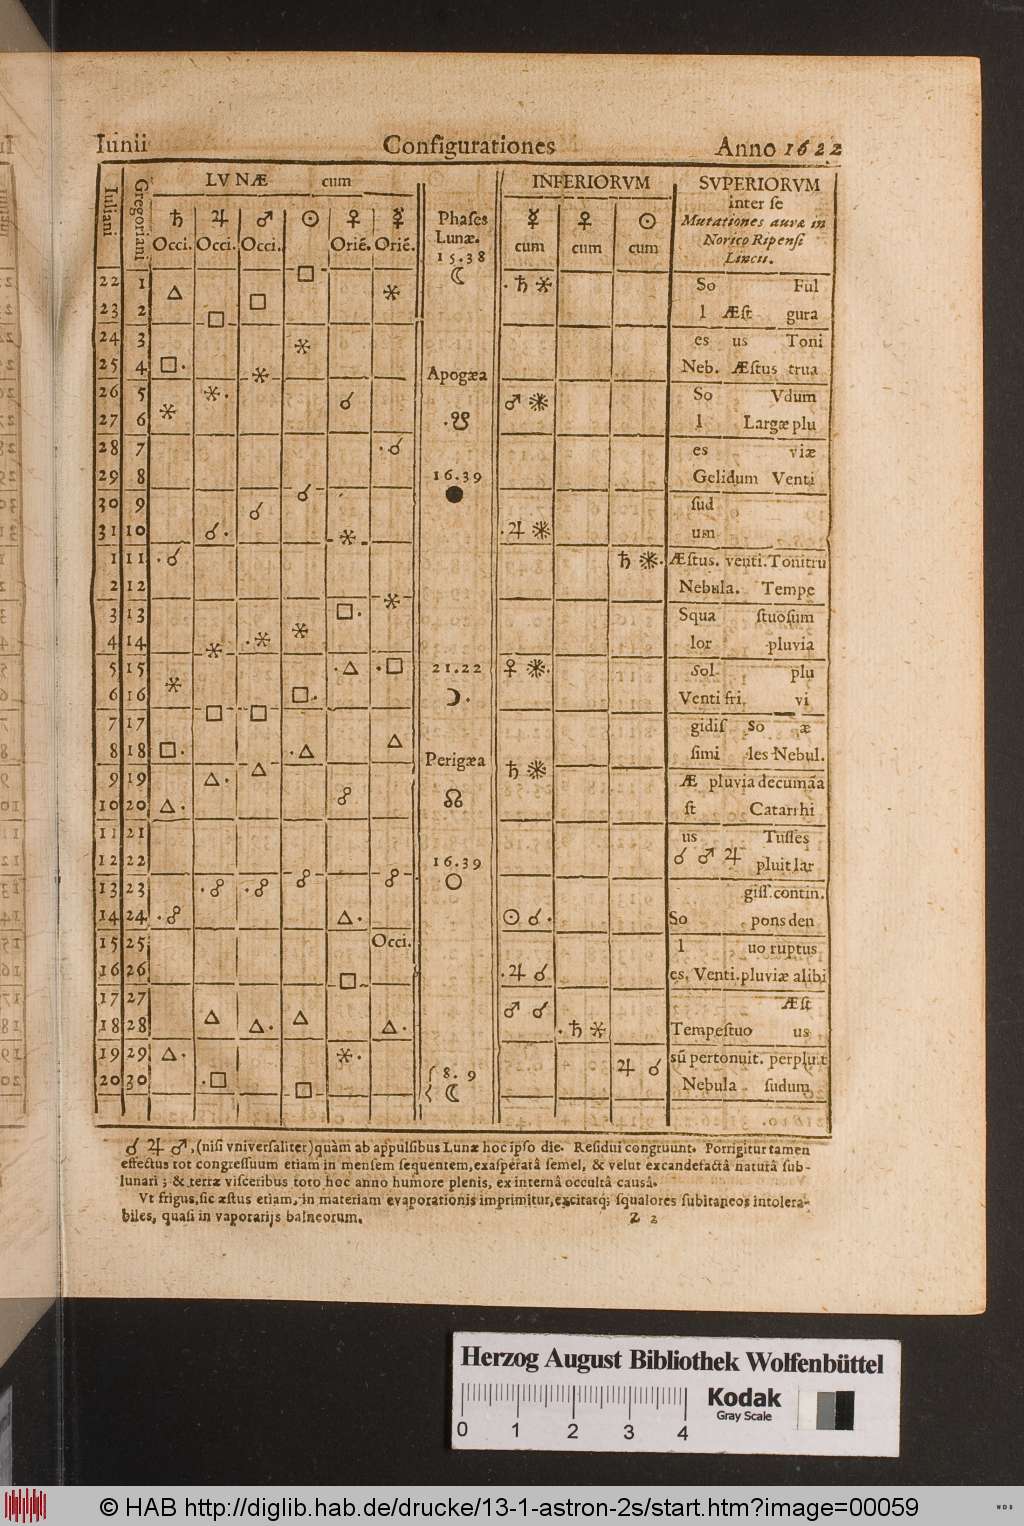 Iunii Configurationes Anno 1622
Iuliani Gregoriani LVNÆ cum INFERIORVM SVPERIORVM
inter ſe
♄ ♃ ♂ ☉ ♀ ☿ Phaſes ☿ ♀ ☉ Mutationes auræ in
Occi. Occi. Occi. Orië. Orië. Lunæ. cum cum cum Norico Ripenſi
15.38 Lincii.
22 1 □ ☾ .♄ ✶ So Ful
△ □ ✶
23 2 □ l Æſt gura
24 3 ✶ es us Toni
25 4 □. ✶ Apogæa Neb. Æſtus trua
26 5 ✶. ☌ ♂ ✶ So Vdum
27 6 ✶ .☋ l Largæ plu
28 7 .☌ es viæ
29 8 ☌ 16.39 Gelidum Venti
30 9 ☌ ● ſud
31 10 ☌. ✶ .♃ ✶ um
1 11 .☌ ♄ ✶. Æſtus. venti. Tonitru
2 12 ✶ Nebula. Tempe
3 13 □. Squa ſtuoſum
4 14 ✶ .✶ ✶ lor pluvia
5 15 .△ .□ 21.22 ♀ ✶. Sol plu
6 16 ✶ □. ☽. Venti fri. vi
7 17 □ □ gidiſ So æ
8 18 □. .△ △ Perigæa ſimi les Nebul.
9 19 △. △ ♄ ✶ Æ pluvia decumãa
10 20 △. ☍ ☊ ſt Catarrhi
11 21 us Tuſſes
12 22 16.39 ☌ ♂ ♃ pluit lar
13 23 .☍ .☍ ☍ ☍ ○ giſſ. contin.
14 24 .☍ △. ☉ ☌. So pons den
15 25 Occi. l uo ruptus
16 26 □ .♃ ☌ es. Venti. pluviæ alibi
17 27 ♂ ☌ Æſt
18 28 △ △. △ △. .♄ ✶ Tempeſtuo us
19 29 △. ✶. ♃ ☌ sũ pertonuit. perpluit
20 30 .□ □ 8.9 ☾ Nebula ſudum
☌ ♃ ♂, (niſi vniverſaliter) quàm ab appulſibus Lunæ hoc ipſo die. Reſidui congruunt. Porrigitur tamen
effectus tot congreſſuum etiam in menſem ſequentem, exaſperatâ ſemel, & velut excandefactâ naturâ ſub-
lunari; & terræ viſceribus toto hoc anno humore plenis, ex internâ occultâ causâ.
Vt frigus, ſic æſtus etiam, in materiam evaporationis imprimitur, excitatq; ſqualores ſubitaneos intolera-
biles, quaſi in vaporarijs balneorum. Z 2
Herzog August Bibliothek Wolfenbüttel
0 1 2 3 4 Kodak
Gray Scale
© HAB http://diglib.hab.de/drucke/13-1-astron-2s/start.htm?image=00059